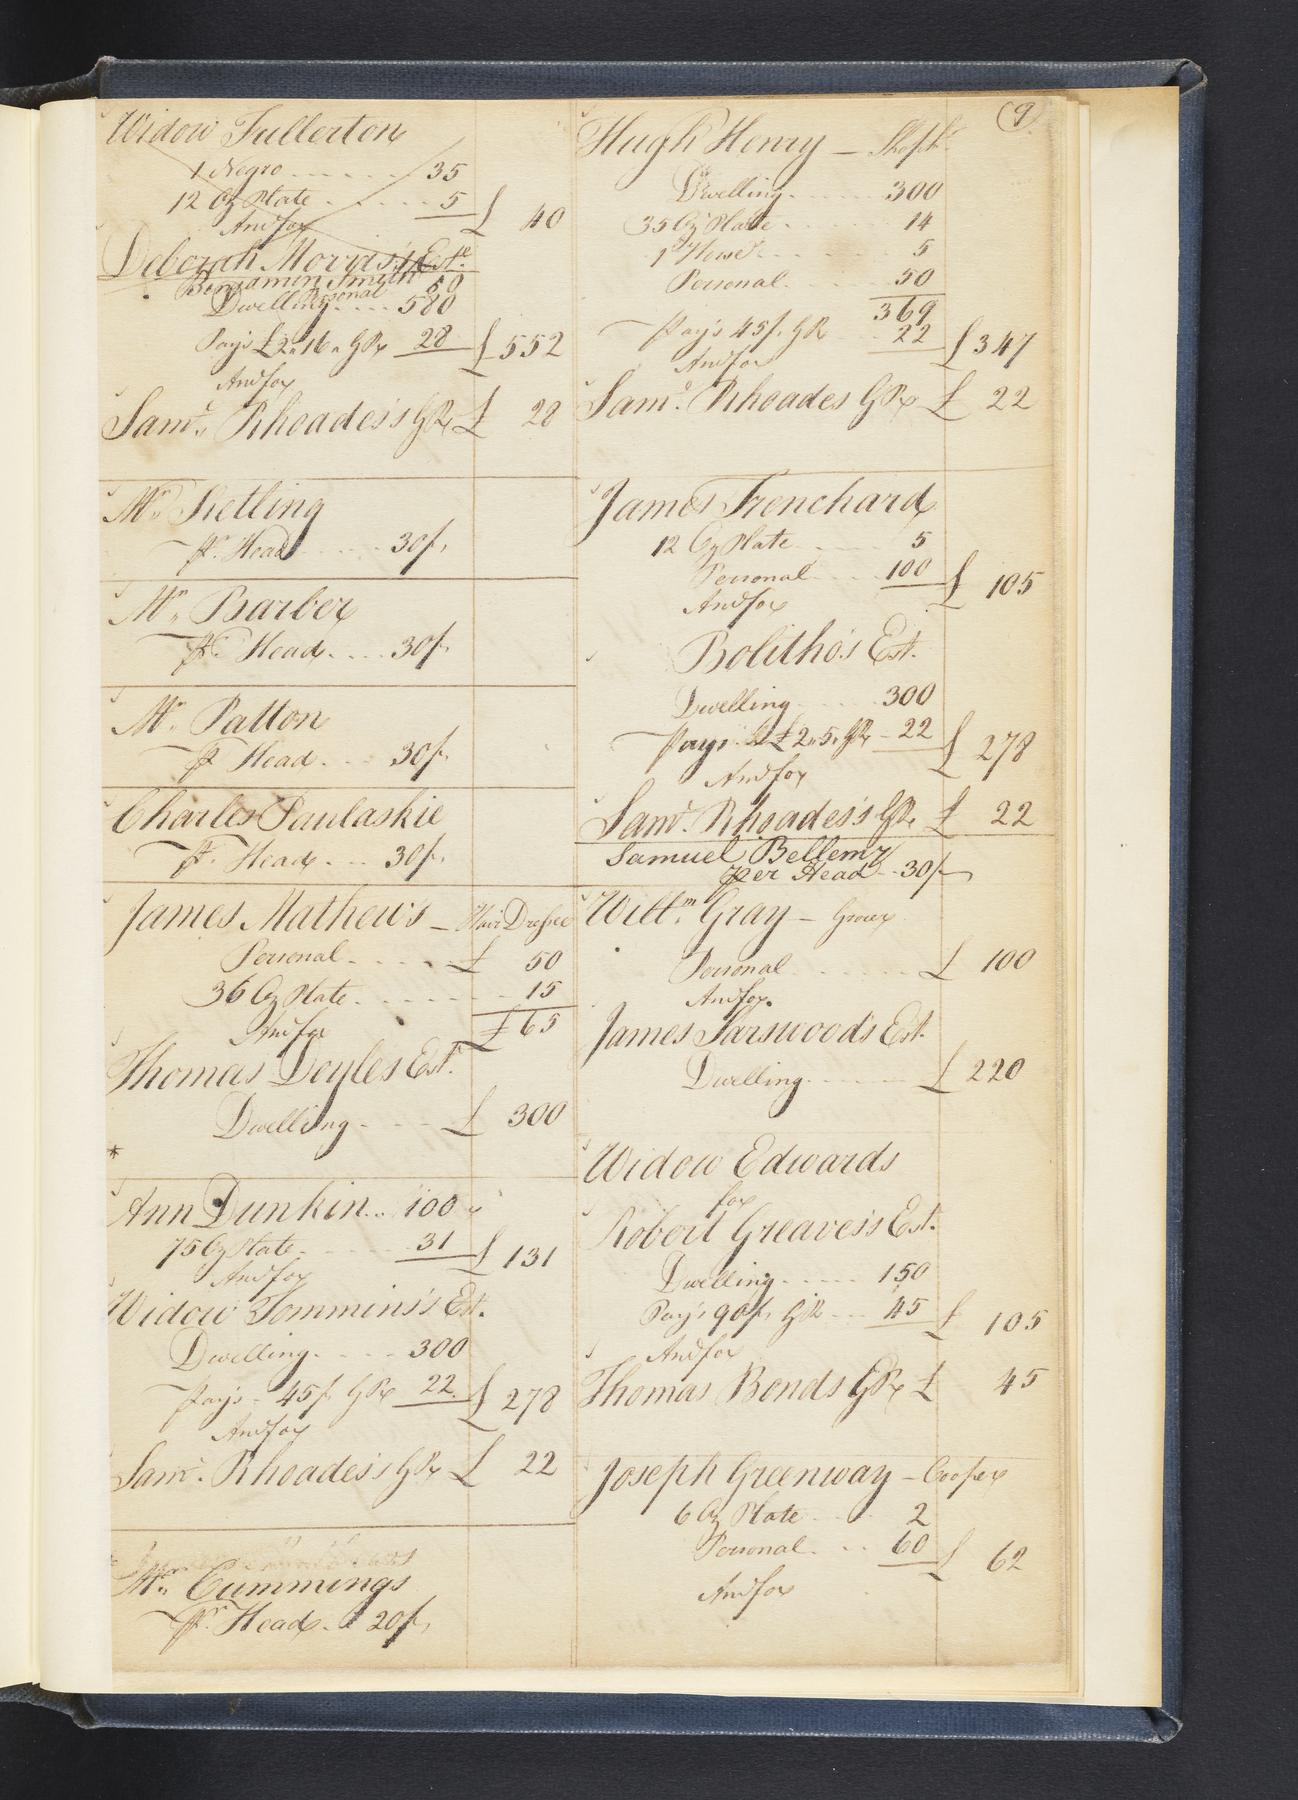 (9)
Widow Fullerton
1 Negro 35
12 Oz Plate 5 £ 40
And for
Deborah Morris's Est.
Benjamin Smith
Personal 50
Dwelling 580
Pays £2,,16,, GR 28 £ 552
And for
Sam.l Rhoades's GR £ 28
Mr.
pr. Head 30/.
Mr. Barber
pr. Head 30/.
Mr. Patton
pr Head 30/.
Charles Paulaskie
pr. Head 30/.
James Mathews - Hair Dresser
Personal £ 50
36 Oz Plate 15
And for £ 65
Thomas Doyles Est.
Dwelling £ 300
*
Ann Dunkin 100
75 Oz Plate 31 £ 131
And for
Widow Tommins's Est.
Dwelling 300
Pays 45/. GR 22 £ 278
And for
Sam.l Rhoades's GR £ 22
Mr. Cummings
pr. Head 20/.
Hugh Henry -
Dwelling 300
35 Oz Plate 14
1 Horse 5
Personal 50
369
Pays 45/. GR 22 £ 347
And for
Sam.l Rhoades GR £ 22
James Trenchard
12 Oz Plate 5
Personal 100 £ 105
And for
Bolitho's Est.
Dwelling 300
Pays £2,,5,, GR 22 £ 278
And for
Sam.l Rhoades's GR £ 22
Samuel Bellemy
per Head 30/
Will.m Gray - Grocer
Personal £ 100
And for
James Est.
Dwelling £ 220
Widow Edwards
for
Robert Greaves's Est.
Dwelling 150
Pays 90/. GR 45 £ 105
And for
Thomas Bonds GR £ 45
Joseph Greenway - Cooper
6 Oz Plate 2
Personal 60 £ 62
And for